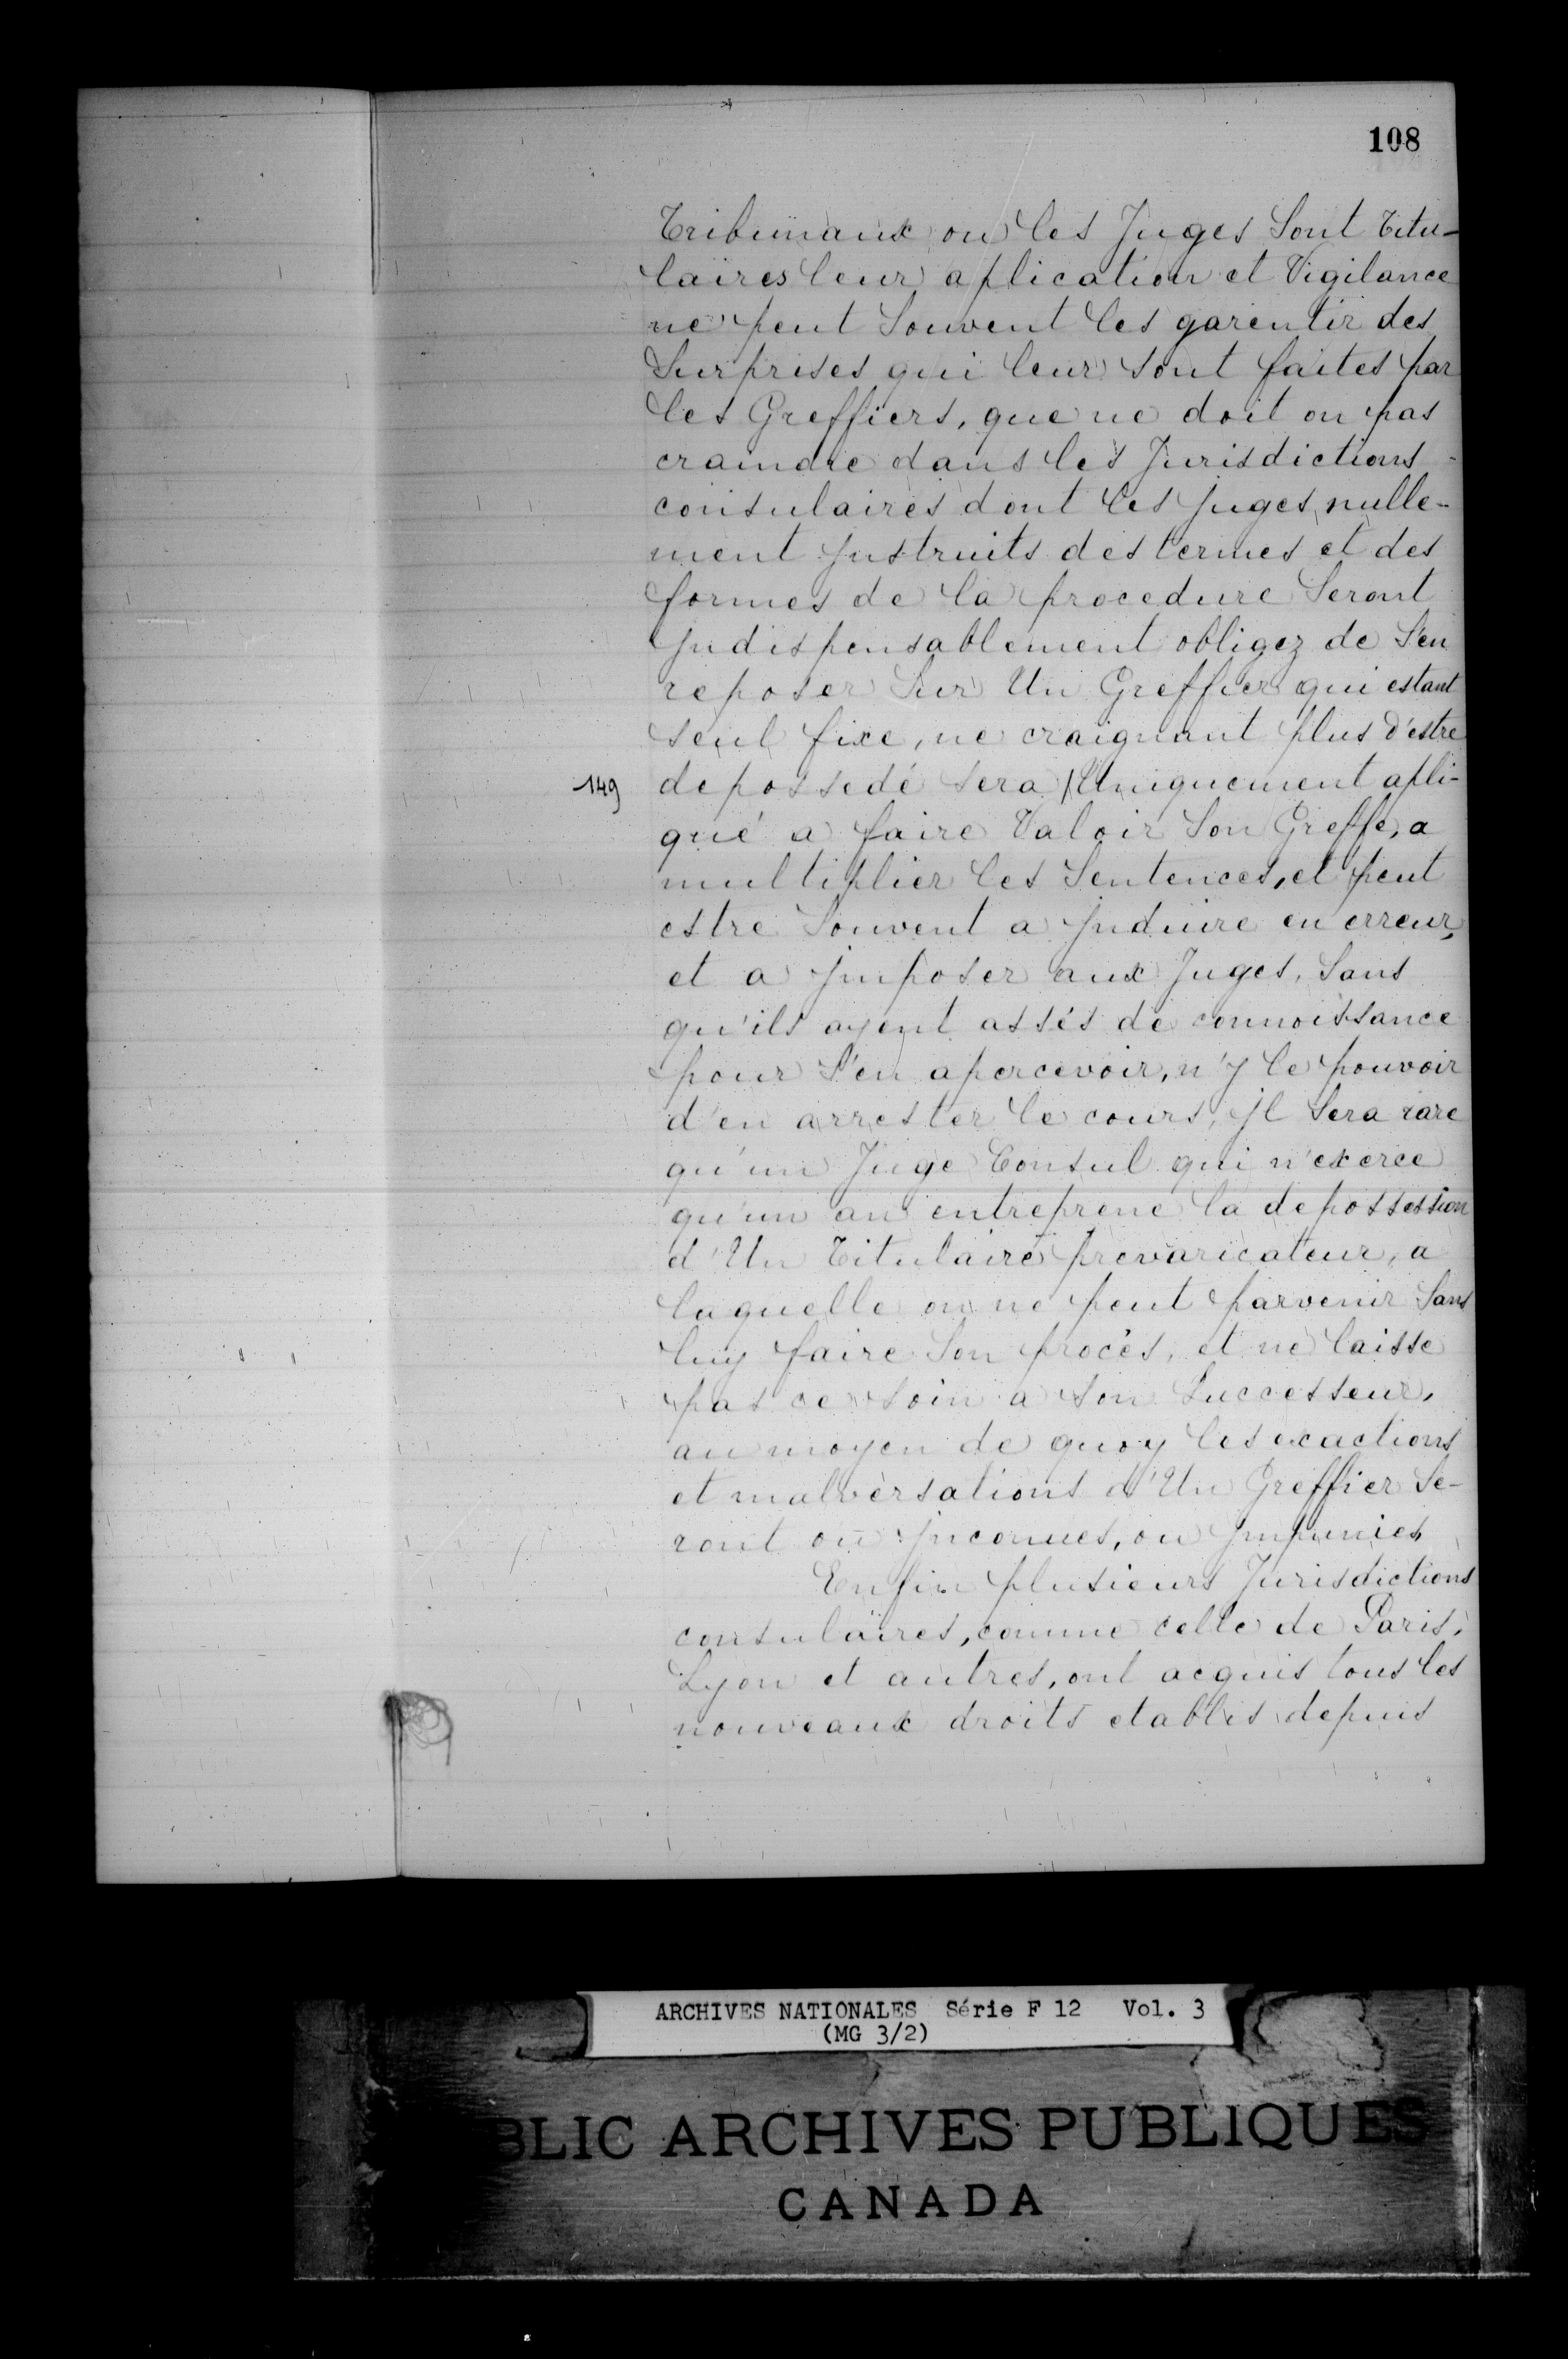 108
Tribunaux ou les Juges Sont Titu-
laires leur aplication et Vigilance
ne peut Souvent les garentir des
Surprises qui leur sont faites par
les Greffiers, que ne doit on pas
craindre dans les Jurisdictions
consulaires dont les juges nulle-
ment jnstruits des termes et des
formes de la procedure Seront
jndispensablement obligez de S'en
reposer Sur Un Greffier qui estant
seul fixe, ne craignant plus d'estre
149 depossedé sera /Uniquement apli-
qué a faire Valoir Son Greffe, a
multiplier les Sentences, et peut
estre Souvent a jnduire en erreur,
et a jmposer aux Juges, Sans
qu'ils ayent assés de connoissance
pour S'en apercevoir, n'y le pouvoir
d'en arrester le cours, jl Sera rare
qu'un Juge Consul qui n'exerce
qu'un an entreprene la depossession
d'Un Titulaire prevaricateur, a
laquelle on ne peut parvenir Sans
luy faire Son procès, et ne laisse
pas ce soin a son Successeur,
au moyen de quoy les exactions
et malversations d'Un Greffier Se-
ront ou jnconues, ou jmpunies
Enfin plusieurs Jurisdictions
consulaires, comme celle de Paris,
Lyon et autres, ont acquis tous les
nouveaux droits etablis depuis
ARCHIVES NATIONALES Série F 12 Vol. 3
(MG 3/2)
BLIC ARCHIVES PUBLIQUES
CANADA